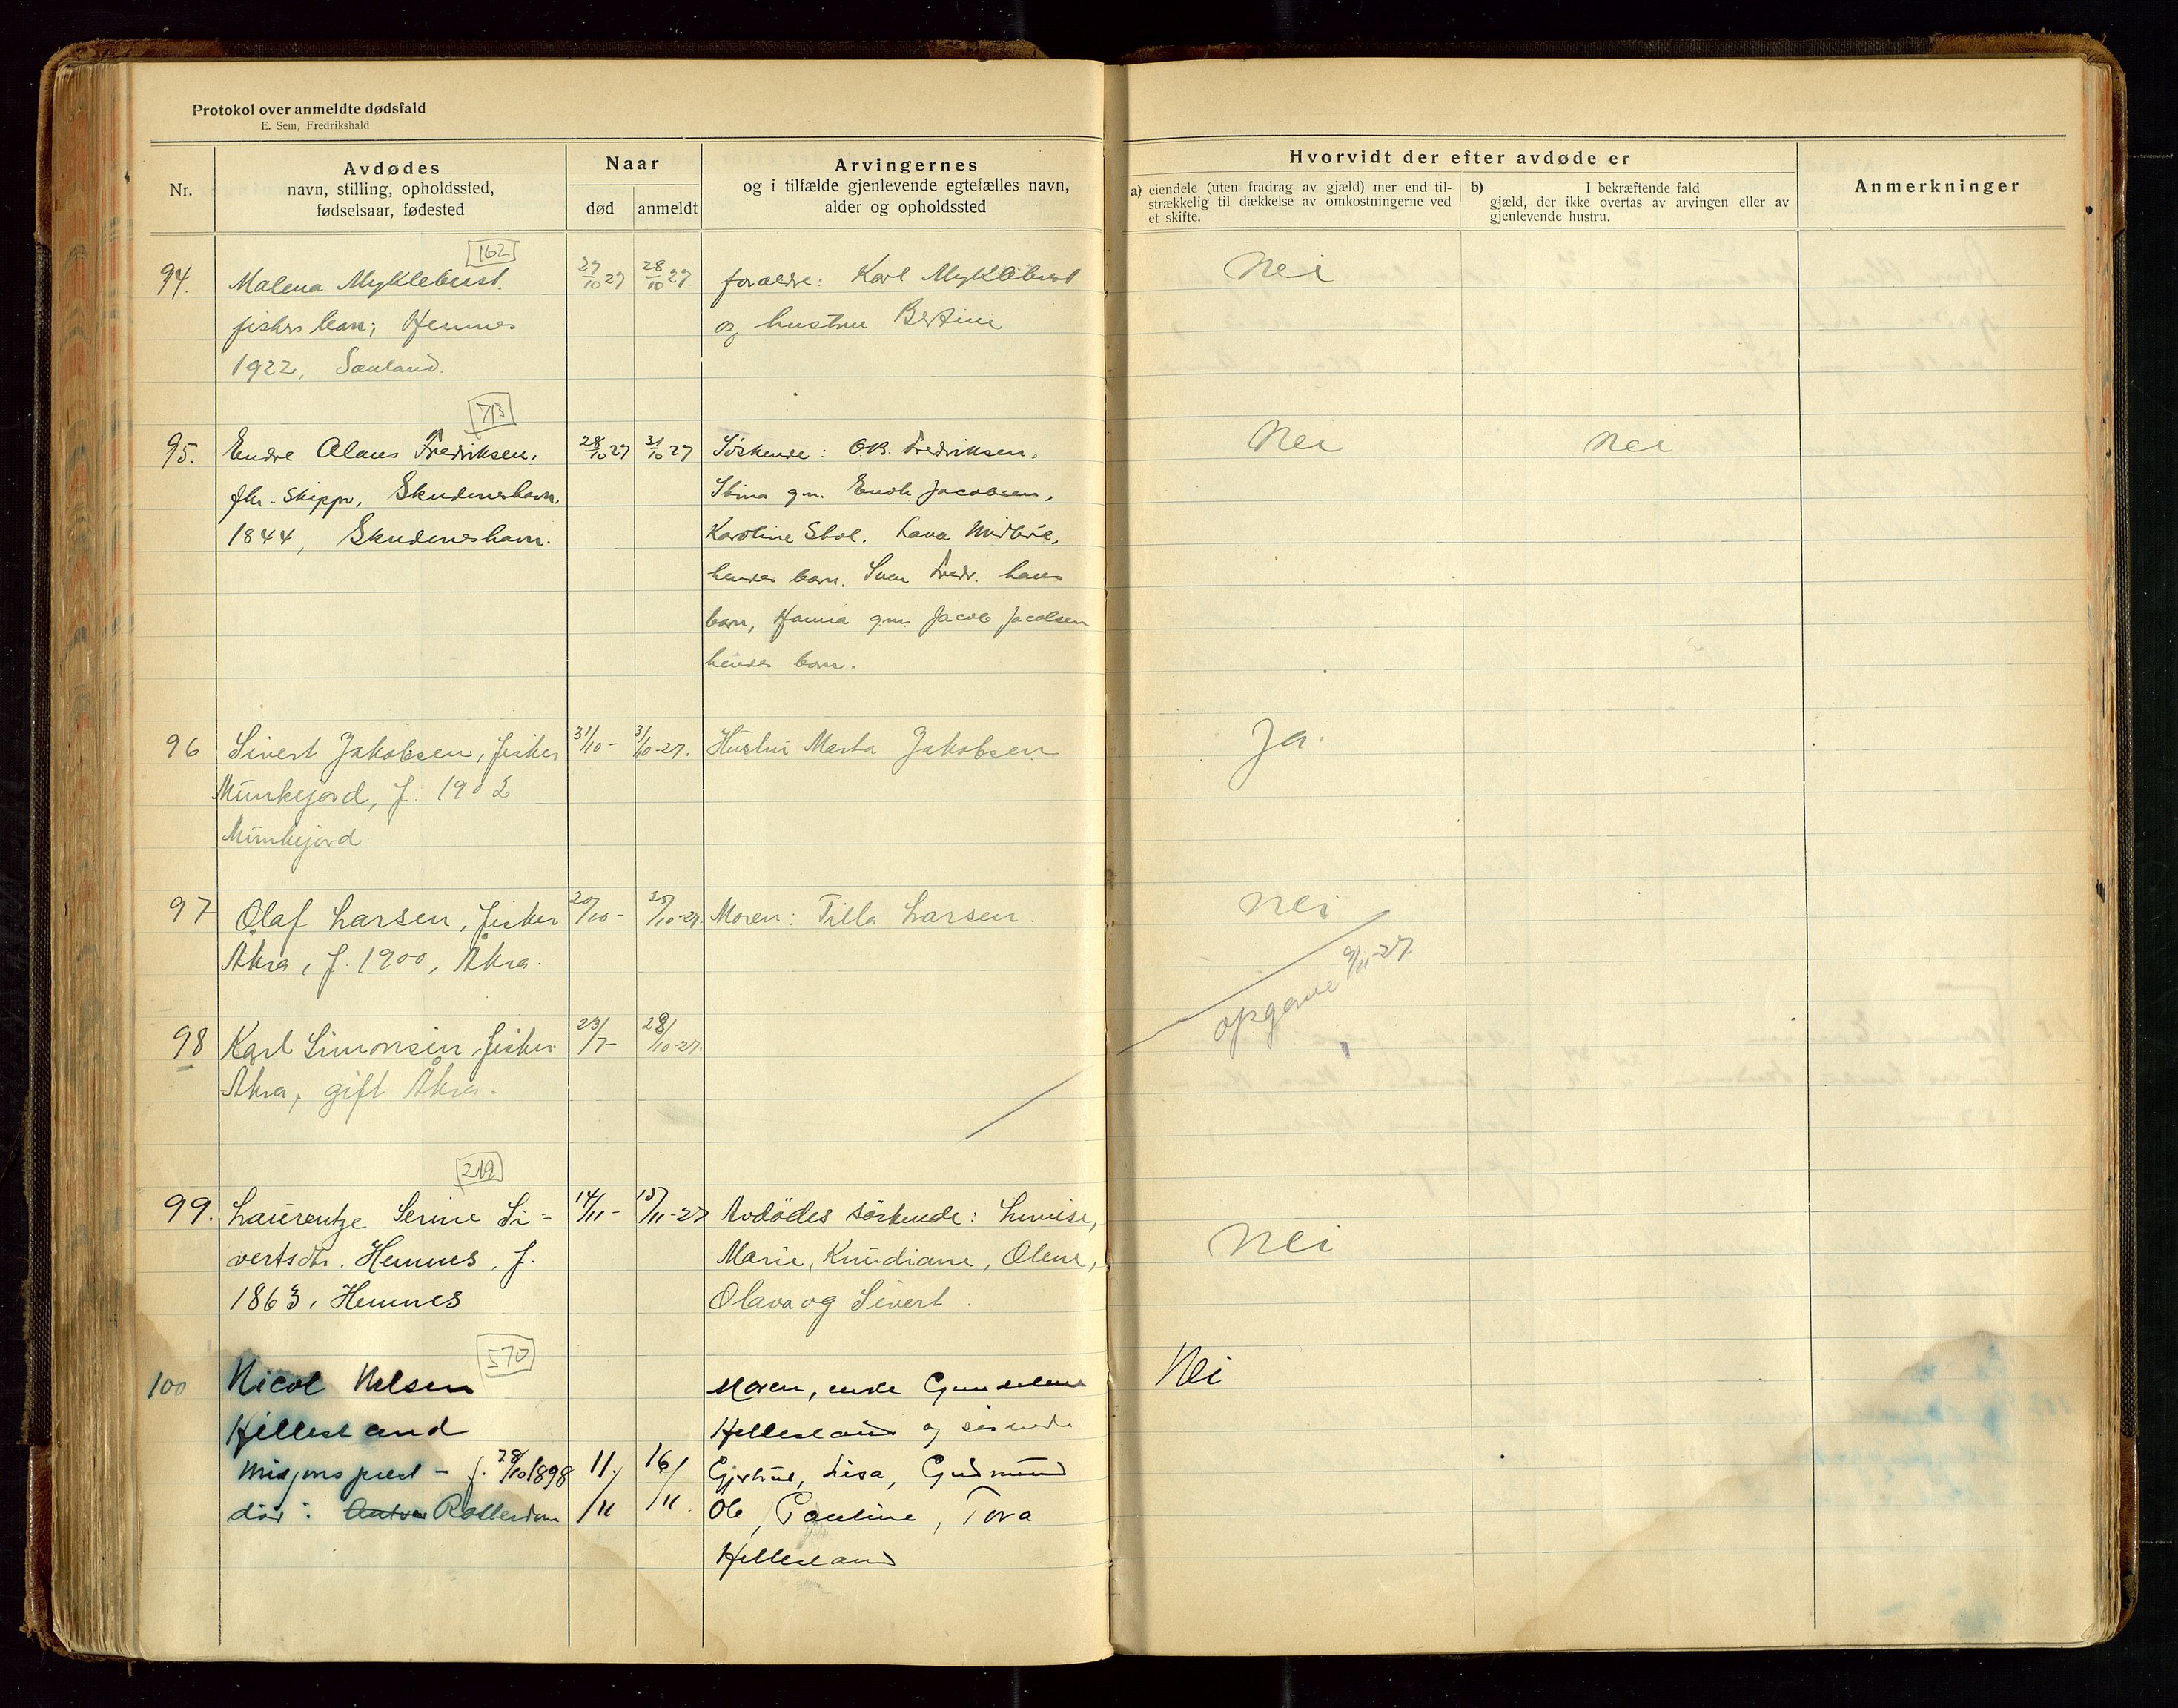 Protokol over anmeldte dødsfald
E. Sem, Fredrikshald
Nr.
Avdødes
navn, stilling, opholdssted,
fødselsaar, fødested
Naar
død
anmeldt
Arvingernes
og i tilfælde gjenlevende egtefælles navn,
alder og opholdssted
Hvorvidt der efter avdøde er
a) eiendele (uten fradrag av gjæld) mer end til-
strækkelig til dækkelse av omkostningerne ved
et skifte.
b) I bekræftende fald
gjæld, der ikke overtas av arvingen eller av
gjenlevende hustru.
Anmerkninger
162
94. Malena Myklebust. 27/10 27 28/10 27. forældre: Karl Myklebust Nei
fiskers barn; Hemnes og hustru Bertine
1922, Sauland.
713
95. Endre Olaus Fredriksen, 28/10 27 31/10 27 Søskende: O.B. Fredriksen, Nei Nei
fhv. skipper, Skudeneshavn, Stina g.m. Jacobsen,
1844, Skudeneshavn. Karoline Stol. Lava Midbøe,
hendes barn. Sven Fredr. hans
barn, Hanna g.m. Jacob Jacobsen
hendes barn.
96 Sivert Jakobsen, fisker 31/10 - 31/10-27. Hustru Marta Jakobsen Ja.
Munkejord, f. 1902
Munkejord
97 Olaf Larsen, fisker 20/10 - /10-27. Moren: Tilla Larsen. Nei
Åkra, f. 1900, Åkra.
opgave 9/11-27.
98 Karl Simonsen, fisker 23/7- 29/10-27.
Åkra, gift Åkra.
219
99. Laurentze Serine Si= 14/11 - 15/11-27 Avdødes söskende: Lovise, Nei
vertsdtr. Hemnes, f. Marie, Knudiane, Olene,
1863, Hemnes Olava og Sivert.
570
100 Nicol Nelsen Moren, enke Gundelene Nei
Hillesland Hillesland og søskende
Misjonsprest - f. 28/10 1898 11/11 16/11. Gjertine, Lisa, Gudmund
død: Antve Rotterdam Ole, Pauline, Tora
Hillesland